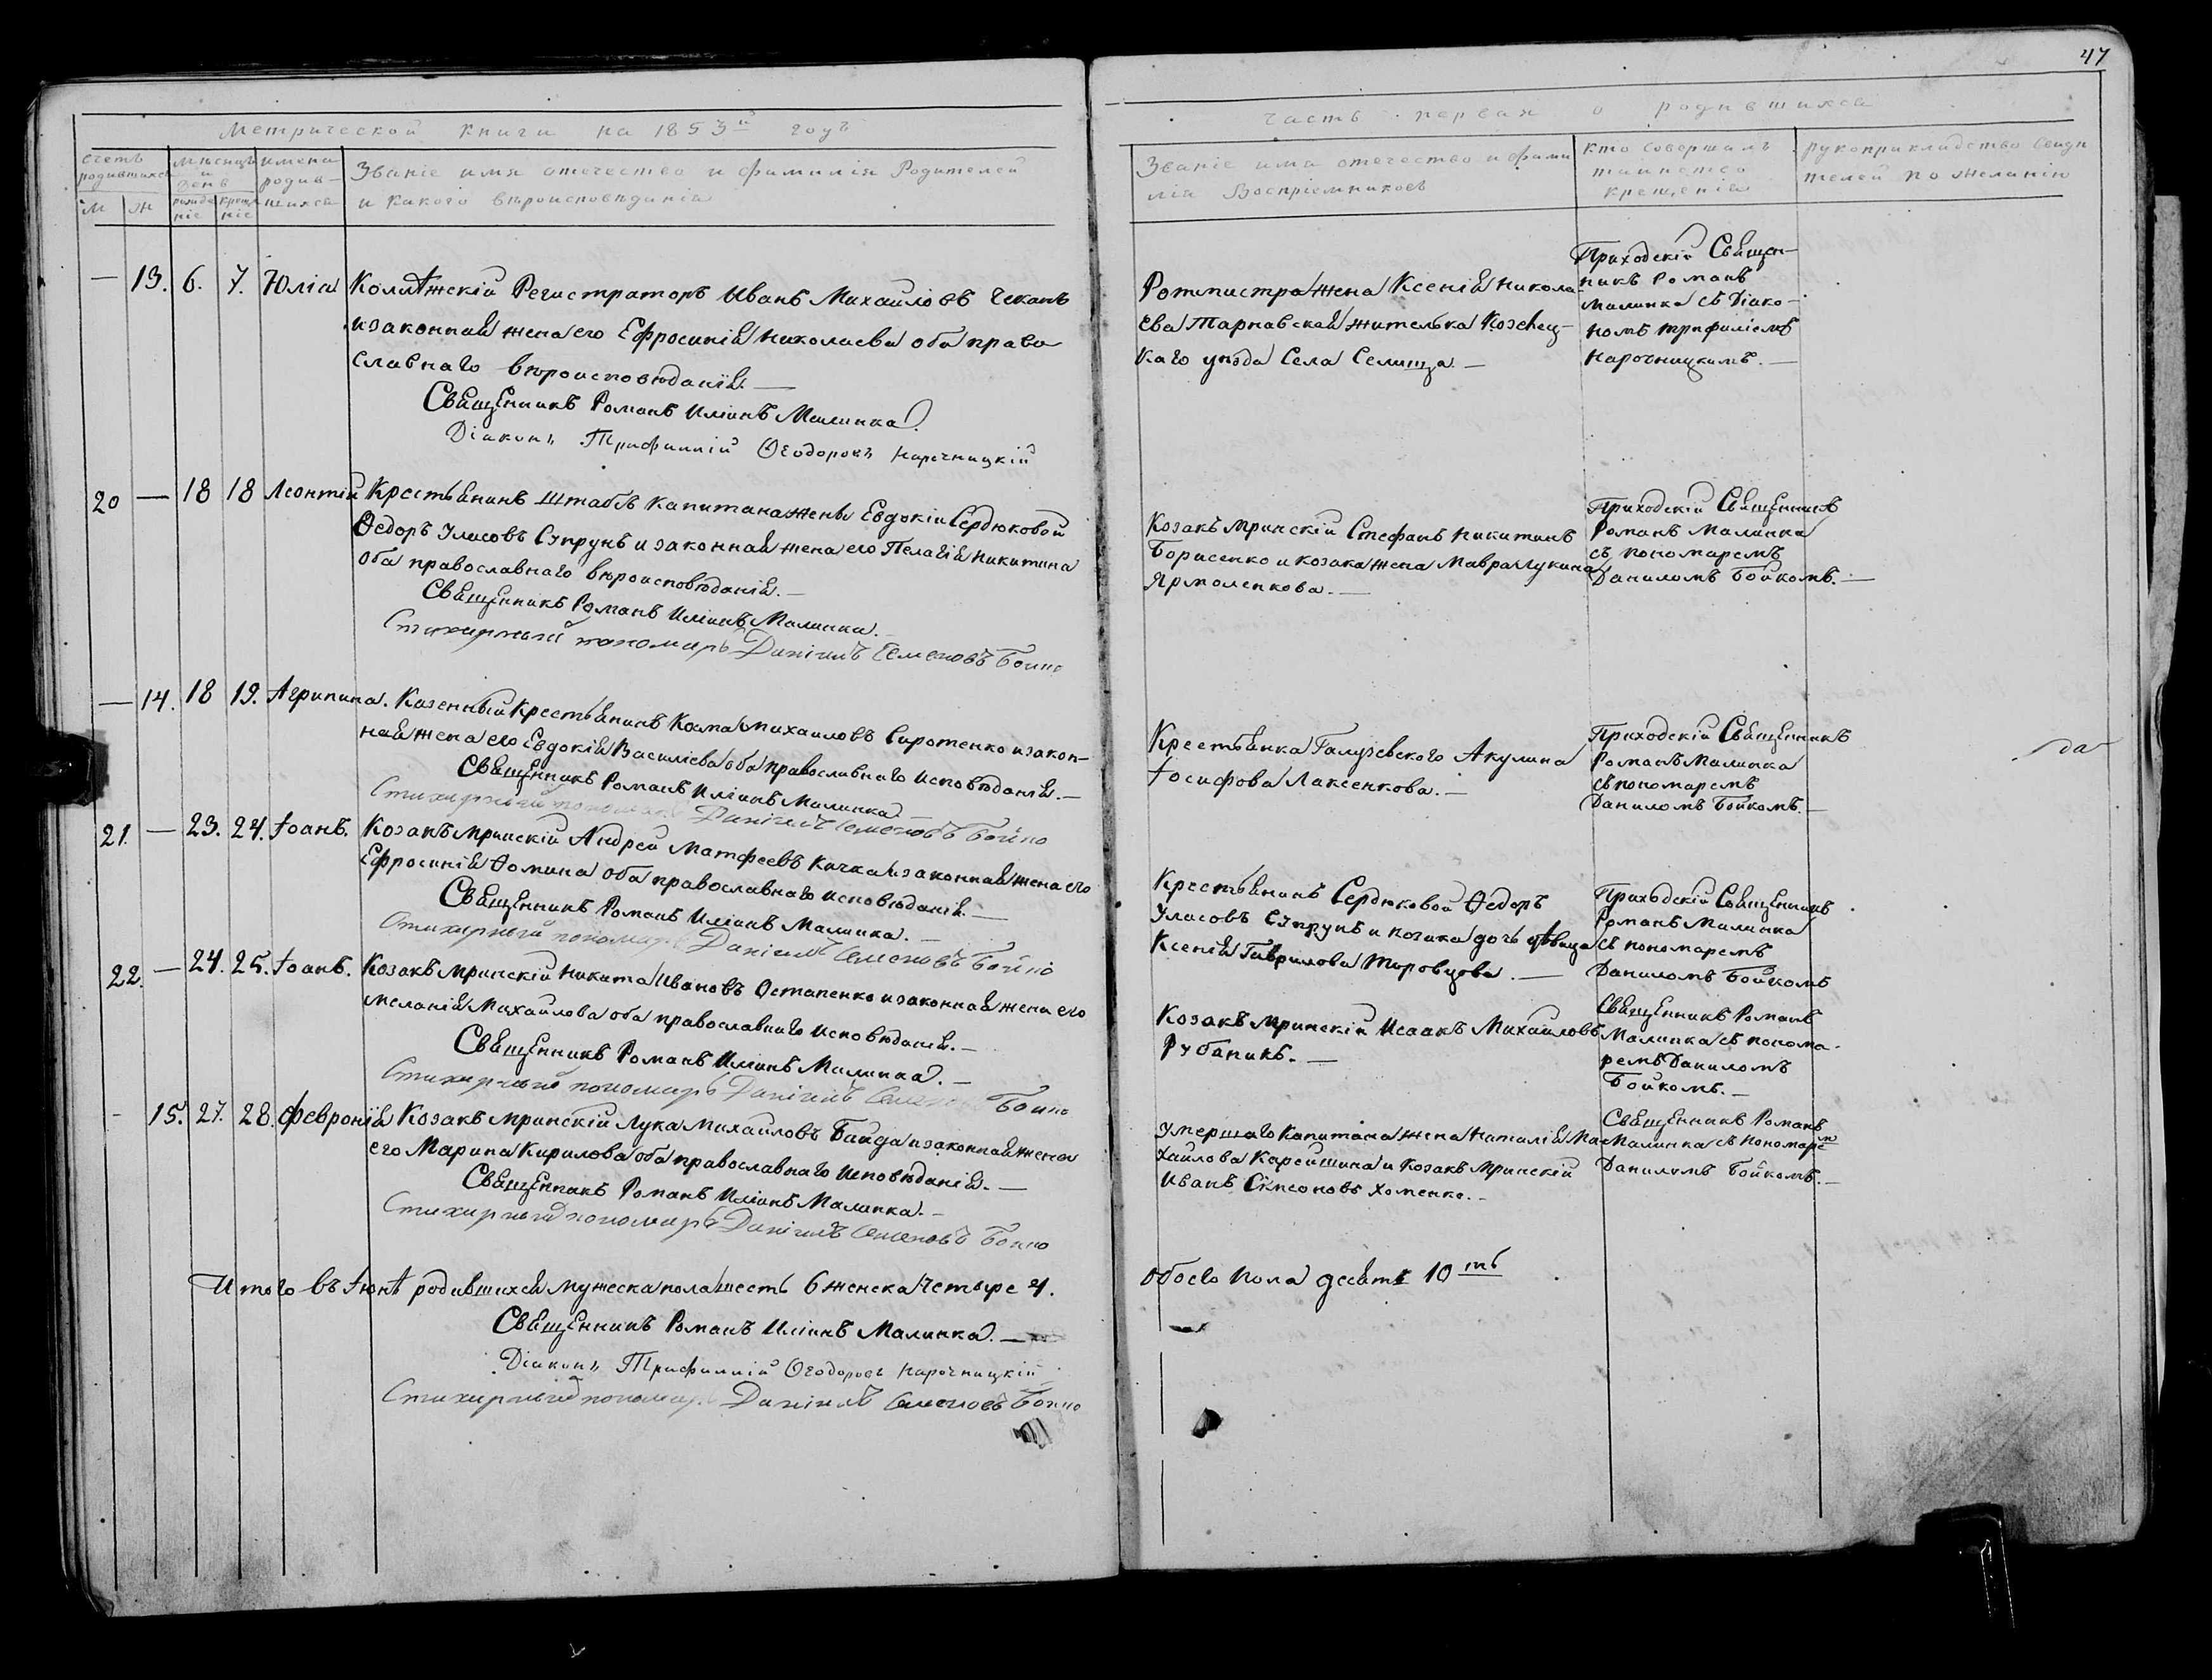 47
Метрической книги на 1853й годъ
Счетъ родившихся
М
Ж
Мѣсяцъ и день
рожденіе
крещеніе
имена родившихся
Званіе имя отечество и фамилія Родителей
и какого вѣроисповѣданія
— 13. 6. 7. Юлія Колѣжскій Регистраторъ Иванъ Михайловъ Чеканъ
и законная жена его Ефросинія Николаева оба право
славнаго вѣроисповѣданія. —
Священникъ Романъ Иліинъ Малинка.
Діаконъ Трифиллій Ѳеодоровъ Нарочницкій
20 — 18 18 Леонтій Крестьянинъ Штабсъ Капитана жены Евдокіи Сердюковой
Ѳедоръ Уласовъ Супрунъ и законная жена его Пелагія Никитина
оба православнаго вѣроисповѣданія. —
Священникъ Романъ Иліинъ Малинка. —
Стихирный пономарь Даніилъ Семеновъ Бойко
— 14. 18 19. Агрипина. Казенный Крестьянинъ Косма Михаиловъ Сиротенко и закон-
ная жена его Евдокія Василіева оба православнаго исповѣданія. —
Священникъ Романъ Иліинъ Малинка —
Стихирный пономарь Даніилъ Семеновъ Бойко
21. — 23. 24. Іоанъ. Козакъ Мринскій Андрей Матфеевъ Качка и законная жена его
Ефросинія Фомина оба православнаго исповѣданія. —
Священникъ Романъ Иліинъ Малинка. —
Стихирный пономарь Даніилъ Семеновъ Бойко
22. — 24. 25. Іоанъ. Козакъ Мринскій Никита Ивановъ Остапенко и законная жена его
Меланія Михайлова оба православнаго исповѣданія. —
Священникъ Романъ Иліинъ Малинка. —
Стихирный пономарь Даніилъ Семеновъ Бойко
— 15. 27. 28. Февронія Козакъ Мринскій Лука Михаиловъ Байда и законная жена
его Марина Кирилова оба православнаго исповѣданія. —
Священникъ Романъ Иліинъ Малинка. —
Стихирный пономарь Даніилъ Семеновъ Бойко
Итого въ Іюнѣ родившихся мужеска пола шесть 6 женска четыре 4.
Священникъ Романъ Иліинъ Малинка. —
Діаконъ Трифиллій Ѳеодоровъ Нарочницкій
Стихирный пономарь Даніилъ Семеновъ Бойко
Часть первая о родившихся
Званіе имя отечество и фами
лія Воспріемниковъ
кто совершалъ
таинство
крещенія
рукоприкладство свидѣ
телей по желанію
Ротмистра жена Ксенія Никола-
ева Тарнавская жителька Козелец-
каго уѣзда Села Селища. —
Приходскій Священ-
никъ Романъ
Малинка съ Діако-
номъ Трифиліемъ
Нарочницкимъ. —
Козакъ Мринскій Стефанъ Никитинъ
Борисенко и козака жена Мавра Лукина
Ярмоленкова. —
Приходскій Священникъ
Романъ Малинка
съ пономаремъ
Даниломъ Бойкомъ. —
Крестьянка Галузевского Акулина
Іосифова Лаксенкова. —
Приходскій Священникъ
Романъ Малинка
съ пономаремъ
Даниломъ Бойкомъ. —
Крестьянинъ Сердюковой Ѳедоръ
Уласовъ Супрунъ и козака дочь дѣвица
Ксенія Гаврилова Шоровцова. —
Приходскій Священникъ
Романъ Малинка
съ пономаремъ
Даниломъ Бойкомъ
Козакъ Мринскій Исаакъ Михайловъ
Рубаникъ. —
Священникъ Романъ
Малинка съ понома-
ремъ Даниломъ
Бойкомъ. —
Умершаго Капитана жена Наталія Ми-
хайлова Карейшина и козакъ Мринскій
Иванъ Сімеоновъ Хоменко. —
Священникъ Романъ
Малинка съ пономаремъ
Даниломъ Бойкомъ. —
обоего пола десять 10ть